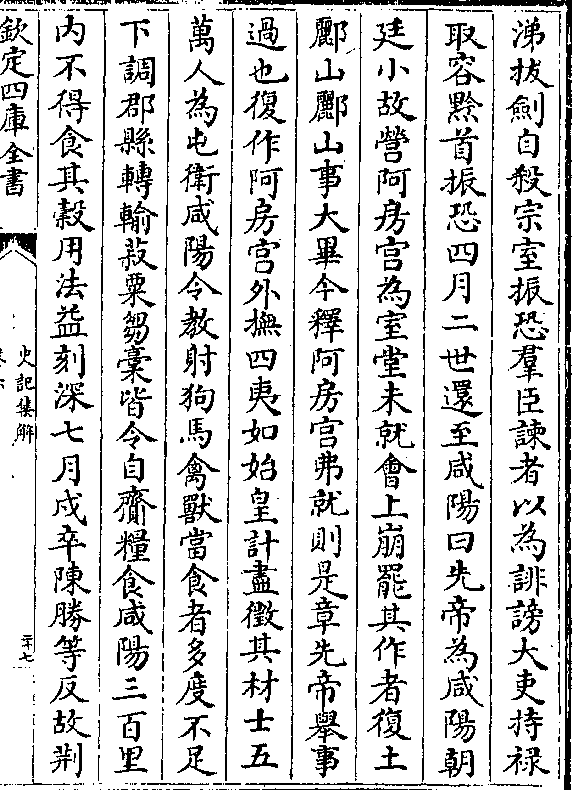 涕拔劍自殺宗室振恐羣臣諫者以為誹謗大吏持禄
取容黔首振恐四月二世還至咸陽曰先帝為咸陽朝
廷小故營阿房宫為室堂未就會上崩罷其作者復土
酈山酈山事大畢今釋阿房宫弗就則是章先帝舉事
過也復作阿房宫外撫四夷如始皇計盡徵其材士五
萬人為屯衛咸陽令教射狗馬禽獸當食者多度不足
下調郡縣轉輸菽粟芻藁皆令自齎糧食咸陽三百里
内不得食其穀用法益刻深七月戍卒陳勝等反故荆
欽定四庫全書
史記集解
二十七